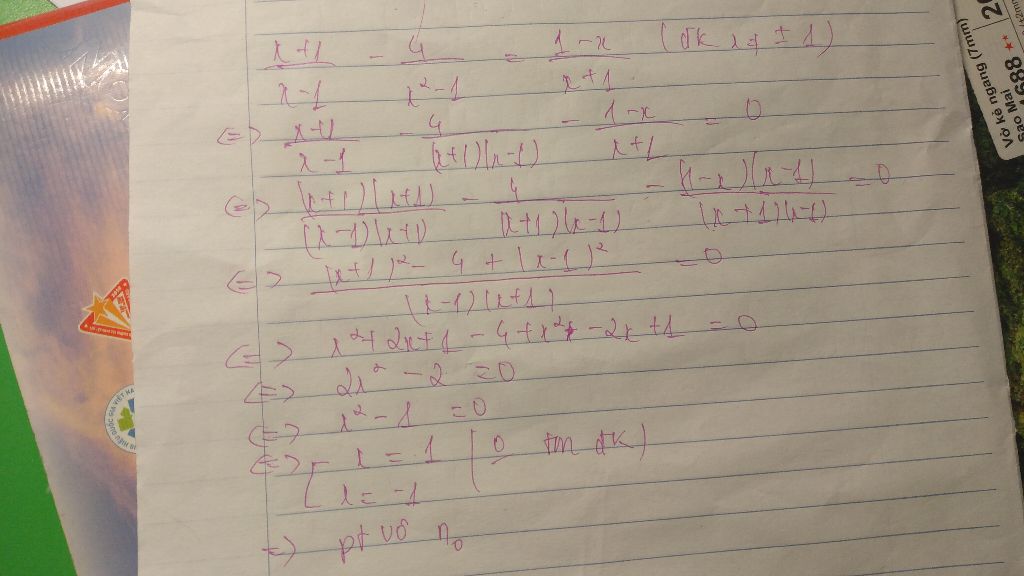 x+1/x-1 - 4/x²-1 = 1-x/x+1 (đk x≠ ±1)
<=> x+1/x-1 - 4/(x+1)(x-1) - 1-x/x+1 = 0
<=> (x+1)(x+1)/(x-1)(x+1) - 4/(x+1)(x-1) - (1-x)(x-1)/(x+1)(x-1) = 0
<=> (x+1)² - 4 + (x-1)²/(x-1)(x+1) = 0
<=> x²+2x+1-4+x²-2x+1 = 0
<=> 2x² - 2 = 0
<=> x² - 1 = 0
<=> [ x = 1 (0 tm đk)
x = -1
=> pt vô n0
Vở kẻ ngang (7mm)
Sao Mai